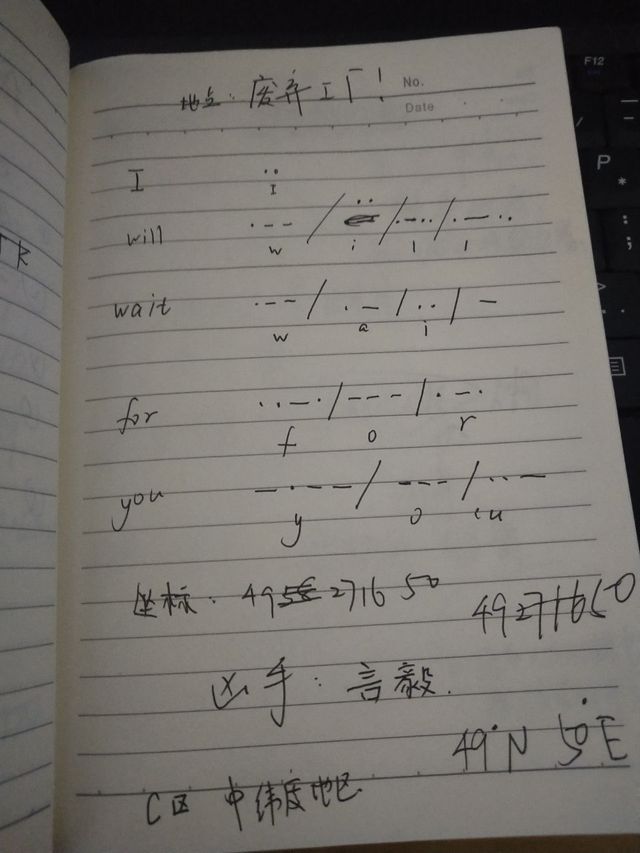 地点：废弃工厂！
No.
Date
I ··
I
will ·-- / ·· / ·-·· / ·-··
w i l l
wait ·-- / ·- / ·· / -
w a i
for ··-· / --- / ·-·
f o r
you -·-- / --- / ··-
y o u
坐标：49 271650
49271650
凶手：言毅.
49°N 50°E
C区 中纬度地区
F12
P